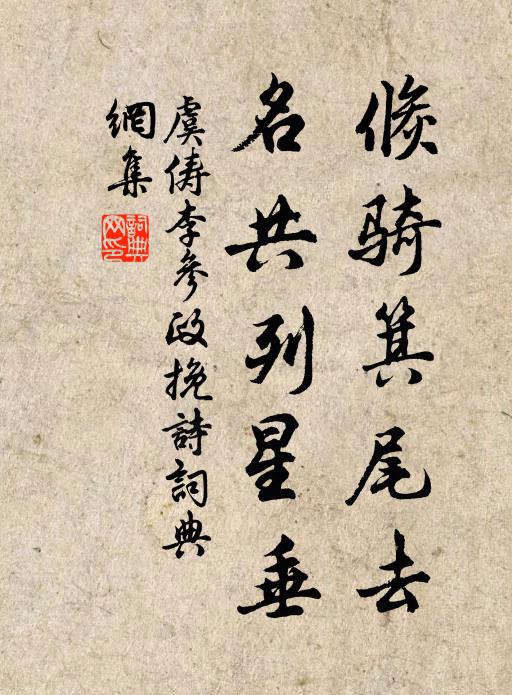 倏骑箕尾去
名共列星垂
虞俦李参政挽詩詞典
網集
詞典网印